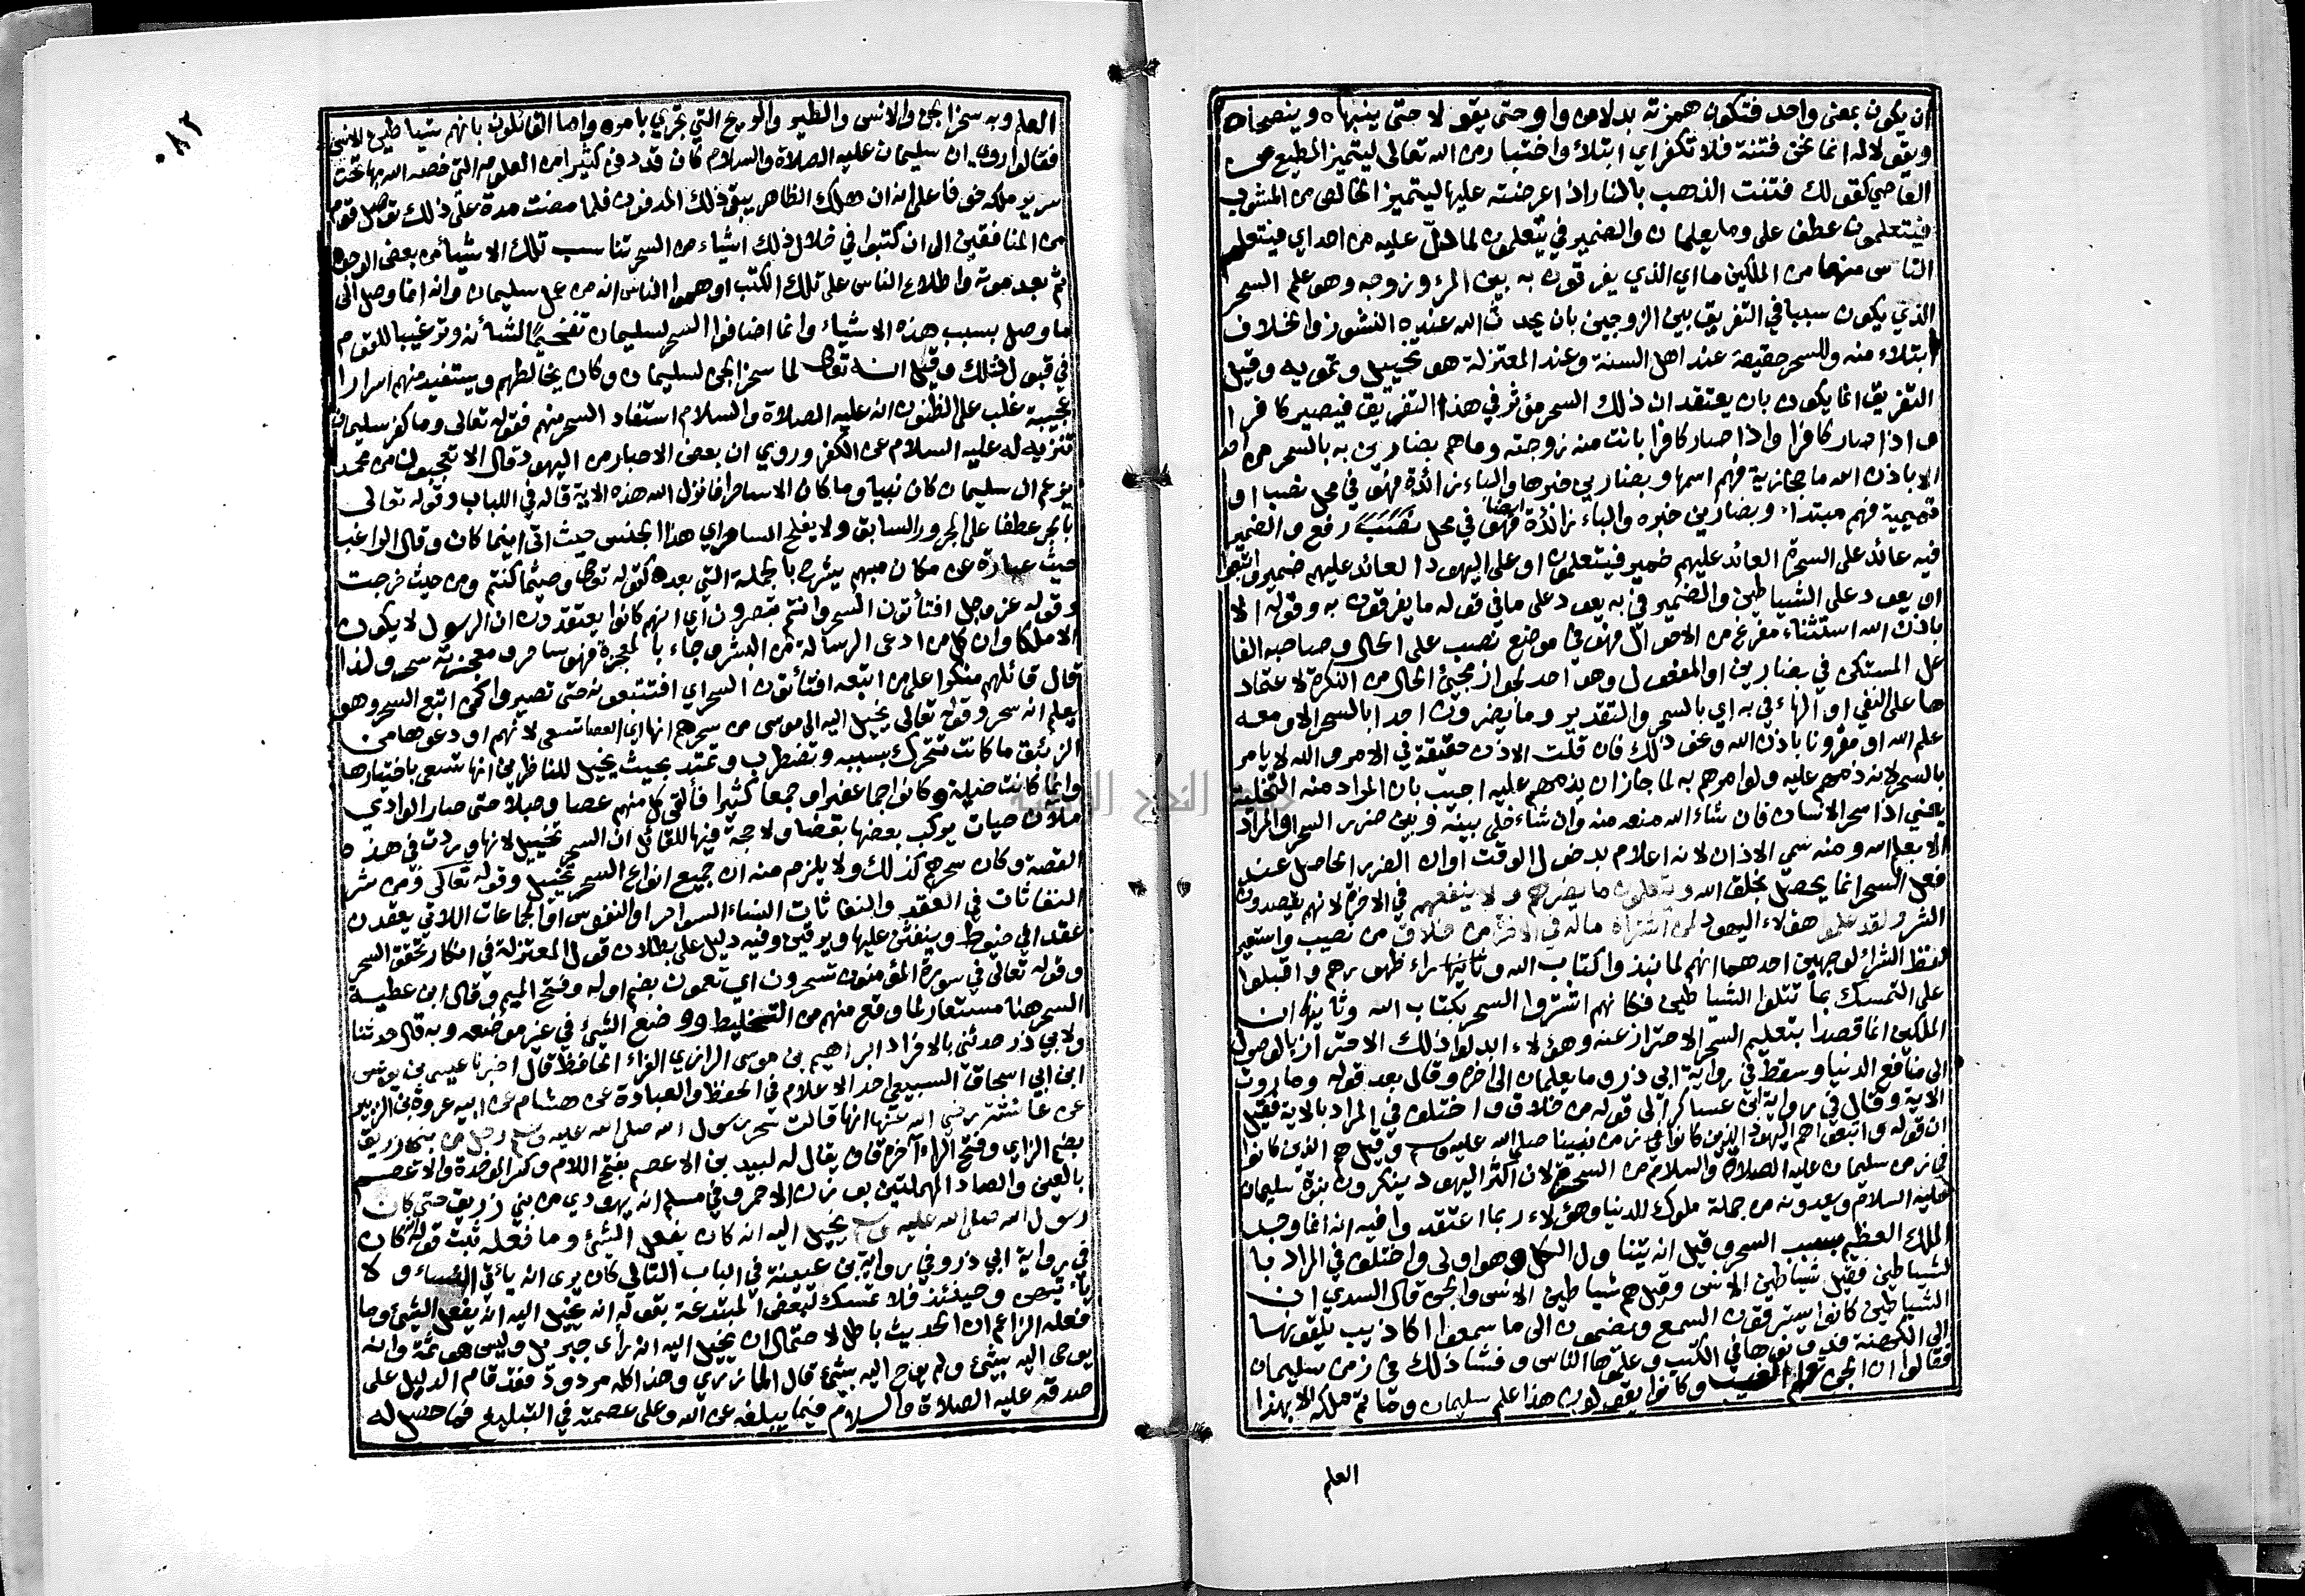 ان يكون بمعنى واحد فتكون همزته بدلا من واو حتى يقولا حتى ينبهاه وينصحاه
ويقولا له انما نحن فتنة فلا تكفر اي ابتلاء واختبار من الله تعالى ليتميز المطيع عن
العاصي كقولك فتنت الذهب بالنار اذا عرضته عليها ليتميز الخالص من المشوب
فيتعلمون عطف على وما يعلمان والضمير في يتعلمون لما دل عليه من احد اي فيتعلم
الناس منهما من الملكين ما اي الذي يفرقون به بين المرء وزوجه وهو علم السحر
الذي يكون سببا في التفريق بين الزوجين بان يحدث الله عنده النشوز والخلاف
ابتلاء منه وللسحر حقيقة عند اهل السنة وعند المعتزلة هو تخييل وتمويه وقيل
التفريق انما يكون بان يعتقد ان ذلك السحر مؤثر في هذا التفريق فيصير كافرا
واذا صار كافرا واذا صار كافرا بانت منه زوجته وما هم بضارين به بالسحر من احد
الا باذن الله ما حجازية فهم اسمها وبضارين خبرها والباء زائدة فهو في محل نصب او
تميمية فهم مبتداء وبضارين خبره والباء زائدة ايضا فهو في محل رفع والضمير
فيه عائد على السحرة العائد عليهم ضمير فيتعلمون او على اليهود العائد عليهم ضمير واتبعوا
او يعود على الشياطين والضمير في به يعود على ما في قوله ما يفرقون به وقوله الا
باذن الله استثناء مفرغ من الاحوال فهو في موضع نصب على الحال وصاحبه الفا
عل المستكن في بضارين او المفعول وهو احد لجواز مجيئ الحال من النكرة لاعتماد
ها على النفي او الهاء في به اي بالسحر والتقدير وما يضرون احدا بالسحر الا ومعه
علم الله او مقرونا باذن الله ونحو ذلك فان قلت الاذن حقيقة في الامر والله لا يامر
بالسحر لانه ذمهم عليه ولو امرهم به لما جاز ان يذمهم عليه اجيب بان المراد منه التخلية
يعني اذا سحر الانسان فان شاء الله منعه منه وان شاء خلى بينه وبين ضرر السحر او المراد
الا بعلم الله ومنه سمي الاذان لانه اعلام بدخول الوقت او ان الضرر الحاصل عند
فعل السحر انما يحصل بخلق الله ويتعلمون ما يضرهم ولا ينفعهم في الاخرة لانهم يقصدون
الشر ولقد علموا هؤلاء اليهود لمن اشتراه ماله في الاخرة من خلاق من نصيب واستعير
لفظ الشراء لوجهين احدهما انهم لما نبذوا كتاب الله وراء ظهورهم واقبلوا
على التمسك بما تتلوا الشياطين فكانهم اشتروا السحر بكتاب الله وثانيهما ان
الملكين انما قصدا بتعليم السحر الاحتراز عنه وهؤلاء ابدلوا ذلك الاحتراز بالوصول
الى منافع الدنيا وسقط في رواية ابي ذر وما يعلمان الى اخره وقال بعد قوله وماروت
الاية وقال في رواية ابن عساكر الى قوله من خلاق واختلف في المراد بالاية فقيل
ان قوله واتبعوا هم اليهود الذين كانوا في زمن نبينا صلى الله عليه وسلم وقيل هم الذين كانوا
في زمن سليمان عليه الصلاة والسلام من السحرة لان اكثر اليهود ينكرون نبوة سليمان
عليه السلام ويعدونه من جملة ملوك الدنيا وهؤلاء ربما اعتقدوا فيه انه انما وجد
الملك العظيم بسبب السحر وقيل انه يتناول الكل وهو اولى واختلف في المراد با
لشياطين فقيل شياطين الانس وقيل هم شياطين الانس والجن قال السدي ان
الشياطين كانوا يسترقون السمع ويضمون الى ما سمعوا اكاذيب يلقونها
الى الكهنة فدونوها في الكتب وعلموها الناس وفشا ذلك في زمن سليمان
فقالوا ان الجن تعلم الغيب وكانوا يقولون هذا علم سليمان وما تم ملكه الا بهذا
العلم
٠٨٢
العلم وبه سخر الجن والانس والطير والريح التي تجري بامره واما القائلون بانهم شياطين الانس
فقالوا روي ان سليمان عليه الصلاة والسلام كان قد دفن كثيرا من العلوم التي خصه الله بها تحت
سرير ملكه خوفا على انه ان هلك الظاهر يبقى ذلك المدفون فلما مضت مدة على ذلك توصل قوم
من المنافقين الى ان كتبوا في خلال ذلك اشياء من السحر تناسب تلك الاشياء من بعض الوجوه
ثم بعد موته واطلاع الناس على تلك الكتب اوهموا الناس انه من عمل سليمان وانه انما وصل الى
ما وصل بسبب هذه الاشياء وانما اضافوا السحر لسليمان تفخيما لشأنه وترغيبا للقوم
في قبول ذلك وقيل انه تعالى لما سخر الجن لسليمان وكان يخالطهم ويستفيد منهم اسرارا
عجيبة غلب على الظنون انه عليه الصلاة والسلام استفاد السحر منهم فقوله تعالى وما كفر سليمان
تنزيه له عليه السلام عن الكفر وروي ان بعض الاحبار من اليهود قال الا تعجبون من محمد
يزعم ان سليمان كان نبيا وما كان الا ساحرا فانزل الله هذه الاية قاله في اللباب وقوله تعالى
بالجر عطفا على المجرور السابق ولا يفلح الساحر اي هذا الجنس حيث اتى اينما كان وقال الراغب
حيث عبارة عن مكان مبهم يشرح بالجملة التي بعده كقوله تعالى وحيثما كنتم ومن حيث خرجت
وقوله عز وجل افتأتون السحر وانتم تبصرون اي انهم كانوا يعتقدون ان الرسول لا يكون
الا ملكا وان كل من ادعى الرسالة من البشر وجاء بالمعجزة فهو ساحر ومعجزته سحر ولذا
قال قائلهم منكرا على من اتبعه افتأتون السحر اي افتتبعونه حتى تصيروا كمن اتبع السحر وهو
يعلم انه سحر وقوله تعالى يخيل اليه الى موسى من سحرهم انها اي العصا تسعى لانهم اودعوها من
الزئبق ما كانت تتحرك بسببه وتضطرب وتمتد بحيث يخيل للناظرين انها تسعى باختيارها
وانما كانت حيلة وكانوا جما غفيرا وجمعا كثيرا فالقى كل منهم عصا وحبلا حتى صار الوادي
ملآن حيات يركب بعضها بعضا ولا حجة فيها للقائل ان السحر تخييل لانها وردت في هذه
القصة وكان سحرهم كذلك ولا يلزم منه ان جميع انواع السحر تخييل وقوله تعالى ومن شر
النفاثات في العقد والنفاثات النساء السواحر او النفوس او الجماعات اللاتي يعقدن
عقدا في خيوط وينفثن عليها ويرقين وفيه دليل على بطلان قول المعتزلة في انكار تحقق السحر
وقوله تعالى في سورة المؤمنون تسحرون اي تعمون بضم اوله وفتح الميم وقال ابن عطية
السحر هنا مستعار لما وقع منهم من التخليط ووضع الشيئ في غير موضعه وبه قال حدثنا
ولابي ذر حدثني بالافراد ابراهيم بن موسى الرازي الفراء الحافظ قال اخبرنا عيسى بن يونس
ابن ابي اسحاق السبيعي احد الاعلام في الحفظ والعبادة عن هشام عن ابيه عروة بن الزبير
عن عائشة رضي الله عنها انها قالت سحر رسول الله صلى الله عليه وسلم رجل من بني زريق
بضم الزاي وفتح الراء آخره قاف يقال له لبيد بن الاعصم بفتح اللام وكسر الموحدة والاعصم
بالعين والصاد المهملتين بوزن الاحمر وفي مسلم انه يهودي من بني زريق حتى كان
رسول الله صلى الله عليه وسلم يخيل اليه انه كان يفعل الشيئ وما فعله ثبت قوله كان
في رواية ابي ذر وفي رواية بن عيينة في الباب التالي كان يرى انه يأتي النساء ولا
يأتيهن وحينئذ فلا تمسك لبعض المبتدعة بقوله انه يخيل اليه انه يفعل الشيئ وما
فعله الزاعم ان الحديث باطل لاحتمال ان يخيل اليه انه رأى جبريل وليس هو ثمة وانه
يوحى اليه بشيئ ولم يوح اليه بشيئ قال المازري وهذا كله مردود فقد قام الدليل على
صدقه عليه الصلاة والسلام فيما يبلغه عن الله وعلى عصمته في التبليغ فما حصل له